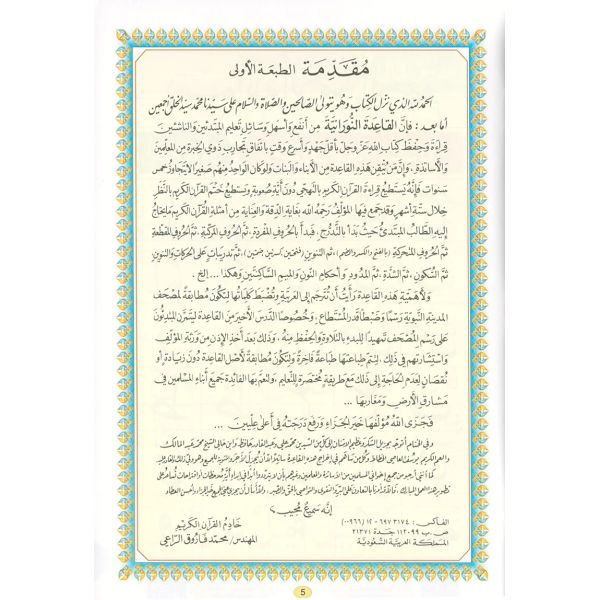 مُقَدِّمَة الطبعَة الأولى
الحمد لله الذي نزل الكتاب وهو يتولى الصالحين والصلاة والسلام على سيدنا محمد سيد الخلق أجمعين
أما بعد : فإنَّ القاعدة النُّورانيَّة من أنفع وأسهل وسائل تعليم المبتدئين والناشئين
قراءة وحفظ كتاب الله عز وجل بأقل جهد وأسرع وقت باتفاق تجارب ذوي الخبرة من المعلمين
والأساتذة ، وإنَّ من يتقن هذه القاعدة من الأبناء والبنات ولو كان الواحد منهم صغيراً لا يتجاوز خمس
سنوات فإنه يستطيع قراءة القرآن الكريم بالتهجي دون أية صعوبة ويستطيع ختم القرآن الكريم بالنظر
خلال ستة أشهر وقد جمع فيها المؤلف رحمه الله بغاية الدقة والعناية من أمثلة القرآن الكريم ما يحتاج
إليه الطالب المبتدئ حيث بدأ بالتدرج ، فبدأ بالحروف المفردة ، ثم الحروف المركبة ، ثم الحروف المقطعة
ثم الحروف المتحركة (بالفتح والكسر والضم) ، ثم التنوين (فتحتين كسرتين ضمتين) ، ثم تدريبات على الحركات والتنوين
ثم السُّكون ، ثم الشدَّة ، ثم المدود و أحكام النون والميم الساكنتين وهكذا ... إلخ .
ولأهمية هذه القاعدة رأيت أن تترجم إلى العربية وتضبط كلماتها لتكون مطابقة لمصحف
المدينة النبوية رسماً وضبطاً قدر المستطاع ، وخصوصاً الدرس الأخير من القاعدة ليتمرن المبتدئون
على رسم المصحف تمهيداً للبدء بالتلاوة والحفظ منه ، وذلك بعد أخذ الإذن من ورثة المؤلف
واستشارتهم في ذلك ، ليتم طباعتها طباعة فاخرة ولتكون مطابقة لأصل القاعدة دون زيادة أو
نقصان لعدم الحاجة إلى ذلك مع طريقة مختصرة للتعليم ، ولتعم بها الفائدة جميع أبناء المسلمين في
مشارق الأرض ومغاربها ...
فجزى الله مؤلفها خير الجزاء ورفع درجته في أعلى عليين ...
وفي الختام أتوجه بجزيل الشكر وعظيم الامتنان إلى كل من
إنه سميع مجيب ،
خادم القرآن الكريم
المهندس/ محمد فاروق الراعي
الفاكس : ٦٩٧٣١٧٤ - ١٢ (٠٠٩٦٦)
ص ب ١١٢٠٩٩ جدة ٢١٣٧١
المملكة العربية السعودية
5